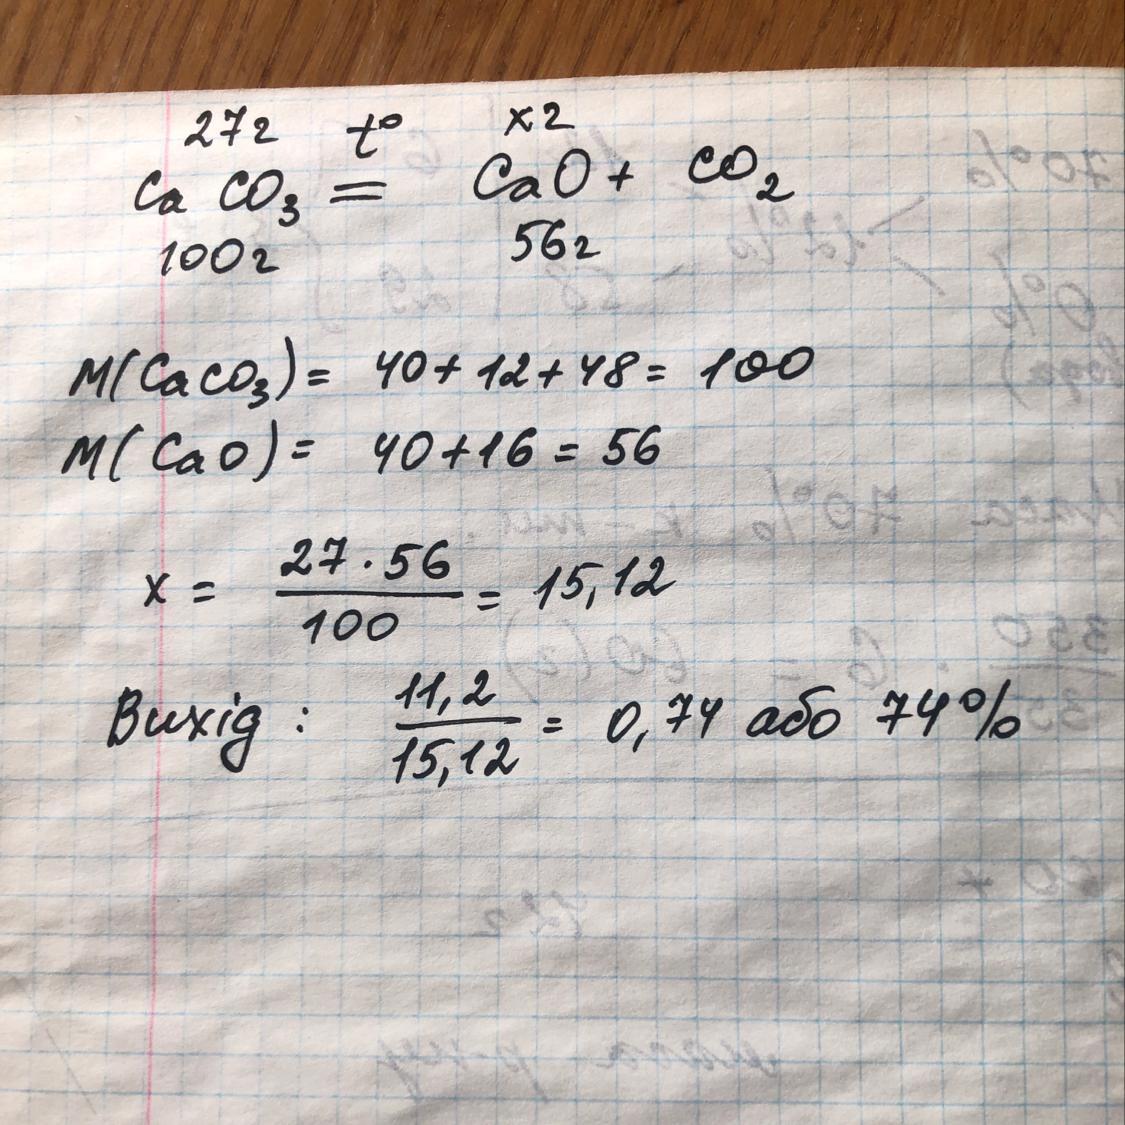 27г t° x г
CaCO₃ = CaO + CO₂
100г 56г
M(CaCO₃) = 40+12+48 = 100
M(CaO) = 40+16 = 56
x = 27·56/100 = 15,12
Вихід: 11,2/15,12 = 0,74 або 74%